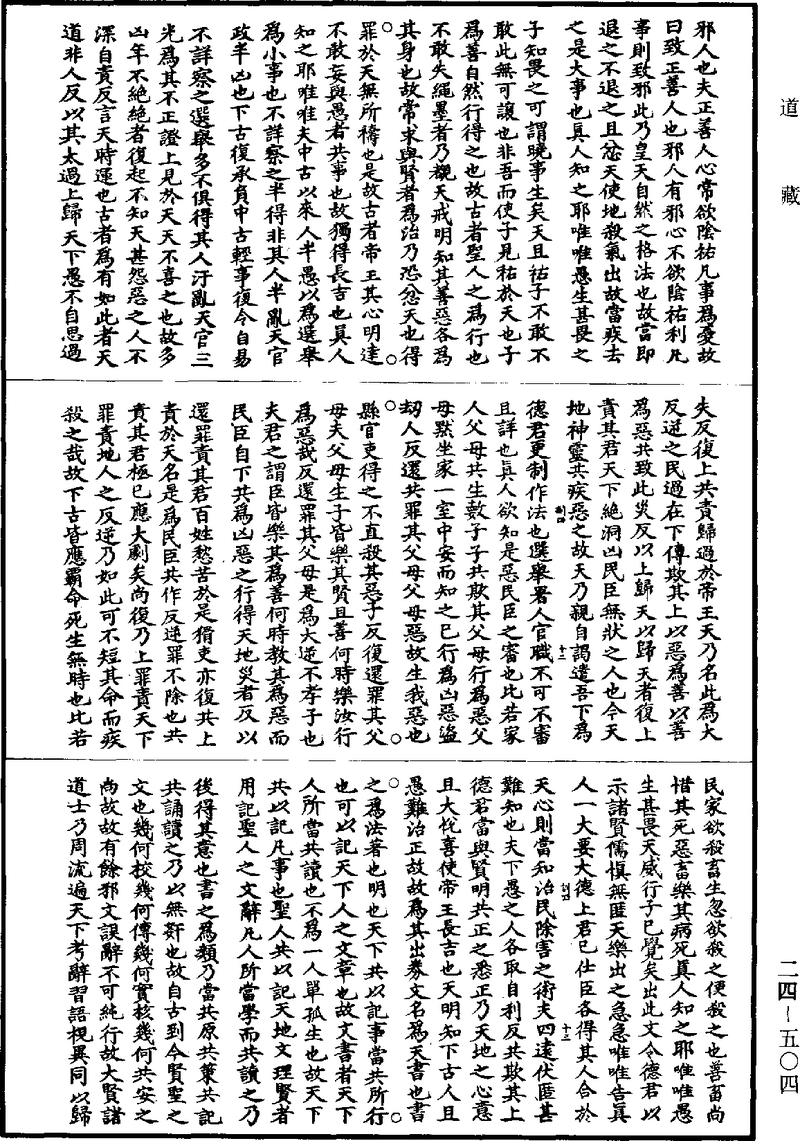 道藏
邪人也夫正善人心常欲陰祐凡事為憂故
曰致正善人也邪人有邪心不欲陰祐利凡
事則致邪此乃皇天自然之格法也故當即
退之不退之且忿天使地殺氣出故當疾去
之是大事也真人知之耶唯唯愚生甚畏之
子知畏之可謂曉事生矣天且祐子不敢不
敢此無可讓也非吾而使子見祐於天也子
為善自然行得之也故古者聖人之為行也
不敢失繩墨者乃覩天戒明知其善惡各為
其身也故常求與賢者為治乃恐忿天也得
罪於天無所禱也是故古者帝王其心明達
不敢妄與愚者共事也故獨得長吉也真人
知之耶唯唯夫中古以來人半愚以為選舉
為小事也不詳察之半得非其人半亂天官
政半凶也下古復承負中古輕事復令自易
不詳察之選舉多不俱得其人汙亂天官三
光為其不正證上見於天天不喜之也故多
凶年不絕絕者復起不知天甚怨惡之人不
深自責反言天時運也古者為有如此者天
道非人反以其太過上歸天下愚不自思過
失反復上共責歸過於帝王天乃名此為大
反逆之民過在下傳欺其上以惡為善以善
為惡共致此災反以上歸天以歸天者復上
責其君天下絕洞凶民臣無狀之人也今天
地神靈共疾惡之故天乃親自謁遣吾下為
德君更制作法也選舉署人官職不可不審
且詳也真人欲知是惡民臣之審也比若家
人父母共生數子子共欺其父母行為惡父
母默坐家一室中安而知之已行為凶惡盜
劫人反還共罪其父母父母惡故生我惡也
縣官吏得之不直殺其惡子反復還罪其父
母夫父母生子皆樂其賢且善何時樂汝行
為惡哉反還罪其父母是為大逆不孝子也
夫君之謂臣皆樂其為善何時教其為惡而
民臣自下共為凶惡之行得天地災者反以
還罪責其君百姓愁苦於是猾吏亦復共上
責於天名是為民臣共作反逆罪不除也共
責其君極已應大劇矣尚復乃上罪責天下
罪責地人之反逆乃如此可不短其命而疾
殺之哉故下古皆應霸命死生無時也比若
民家欲殺畜生忽欲殺之便殺之也善畜尚
惜其死惡畜樂其病死真人知之耶唯唯愚
生甚畏天威行子已覺矣出此文令德君以
示諸賢儒慎無匿天樂出之急急唯唯告真
人一大要大德上君已仕臣各得其人合於
天心則當知治民除害之術夫四遠伏匿甚
難知也夫下愚之人各取自利反共欺其上
德君當與賢明共正之悉正乃天地之心意
且大悅喜使帝王長吉也天明知下古人且
愚難治正故故為其出券文名為天書也書
之為法著也明也天下共以記事當共所行
也可以記天下人之文章也故文書者天下
人所當共讀也不為一人單孤生也故天下
共以記凡事也聖人共以記天地文理賢者
用記聖人之文辭凡人所當學而共讀之乃
後得其意也書之為類乃當共原共策共記
共誦讀之乃以無奸也故自古到今賢聖之
文也幾何校幾何傳幾何實核幾何共安之
尚故故有餘邪文誤辭不可純行故大賢諸
道士乃周流遍天下考辭習語視異同以歸
二四-五〇四